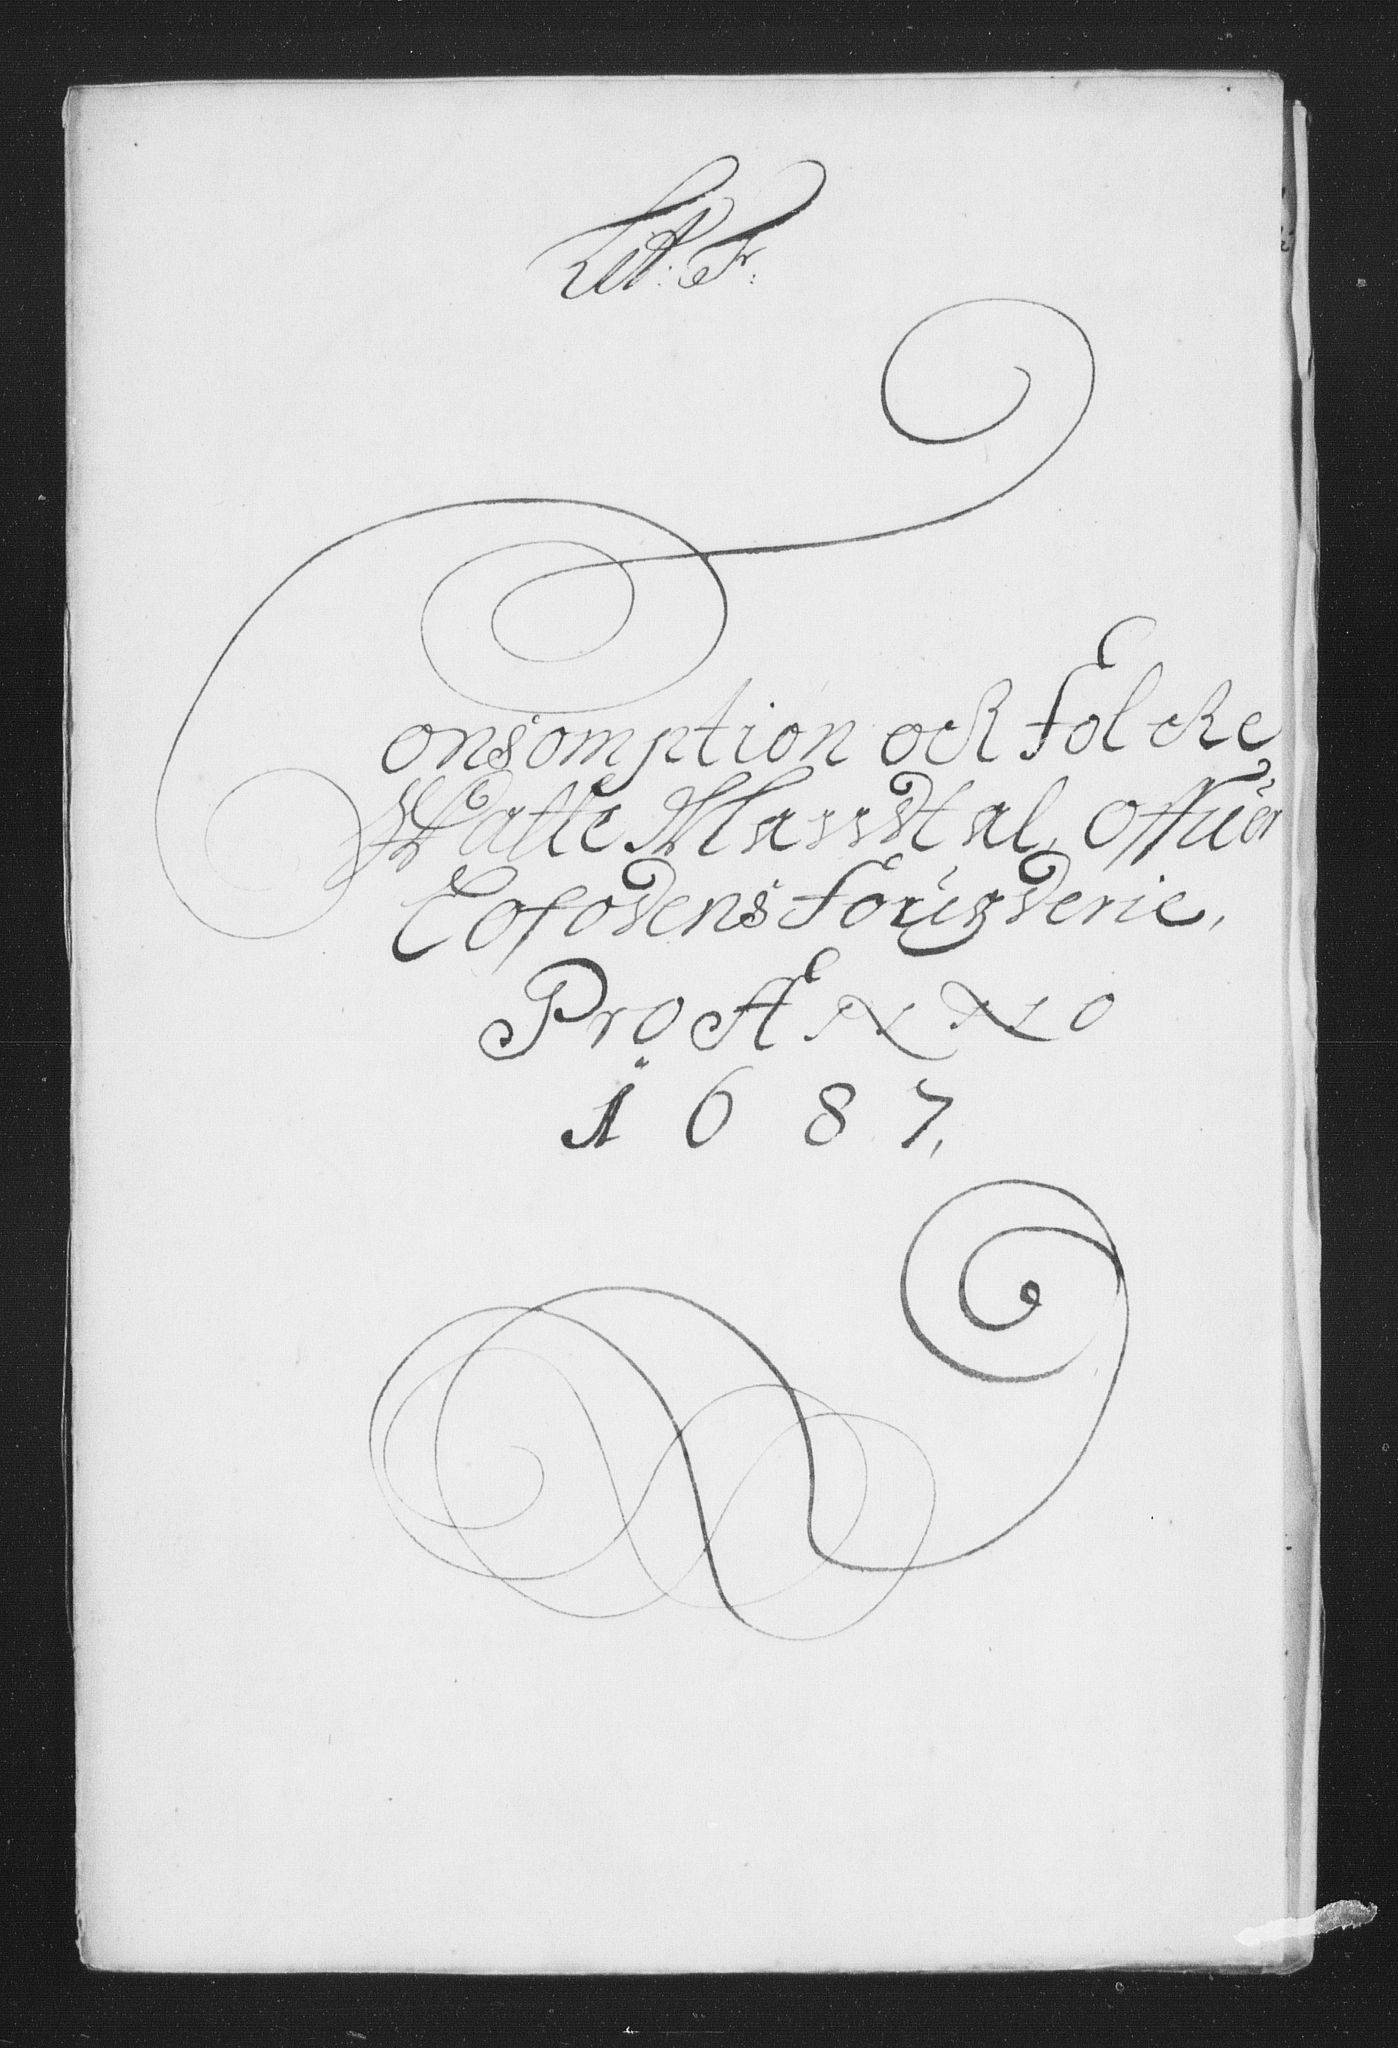 Lit: Fr:
Consomption och folche
Skatte Mandtal, Offuer
Lofodens fougderie,
Pro ANNO
1687,